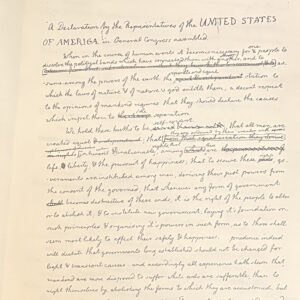 A Declaration by the Representatives of the UNITED STATES
OF AMERICA, in General Congress assembled.
When in the course of human events it becomes necessary for one people to
dissolve the political bands which have connected them with another, and to
sume among the powers of the earth the separate and equal station to
which the laws of nature & of nature's god entitle them, a decent respect
to the opinions of mankind requires that they should declare the causes
which impel them to the separation.
We hold these truths to be self-evident that all men are
created equal
life, liberty & the pursuit of happiness; that to secure these rights, go
vernments are instituted among men, deriving their just powers from
the consent of the governed; that whenever any form of government
becomes destructive of these ends, it is the right of the people to alter
or to abolish it, & to institute new government, laying it's foundation on
such principles & organising it's powers in such form, as to them shall
seem most likely to effect their safety & happiness. prudence indeed
will dictate that governments long established should not be changed for
light & transient causes: and accordingly all experience hath shewn that
mankind are more disposed to suffer while evils are sufferable, than to
right themselves by abolishing the forms to which they are accustomed. but